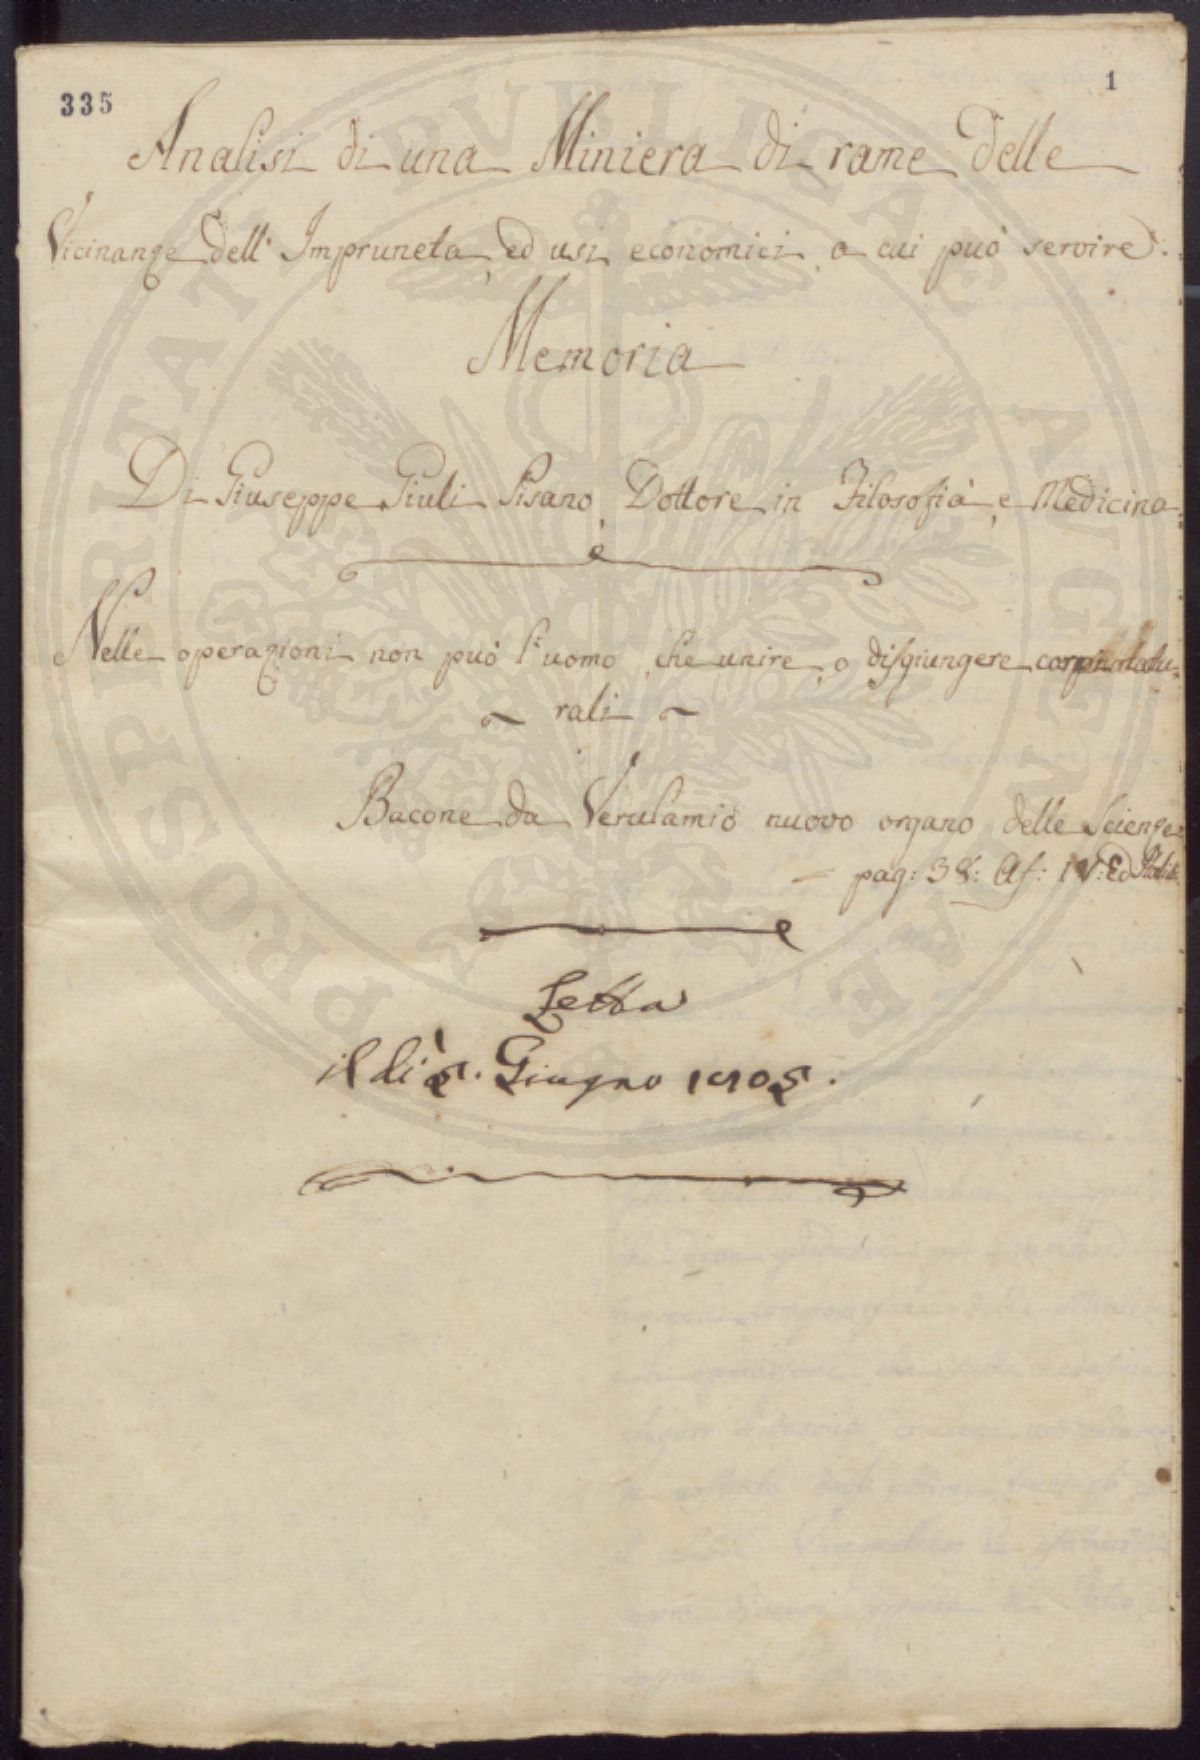 335
1
Analisi di una Miniera di rame delle
Vicinanze dell'Impruneta, ed usi economici, a cui può servire.
Memoria
Di Giuseppe Giuli Pisano Dottore in Filosofia, e Medicina
Nelle operazioni non può l'uomo, che unire, o disgiungere corpi natu-
~ rali ~
Bacone da Verulamio nuovo organo delle Scienze
pag: 38: Af: IV: Ed
Letta
il dì 5. Giugno 1805.
PROSPERITATI PVBLICAE AVGENDAE